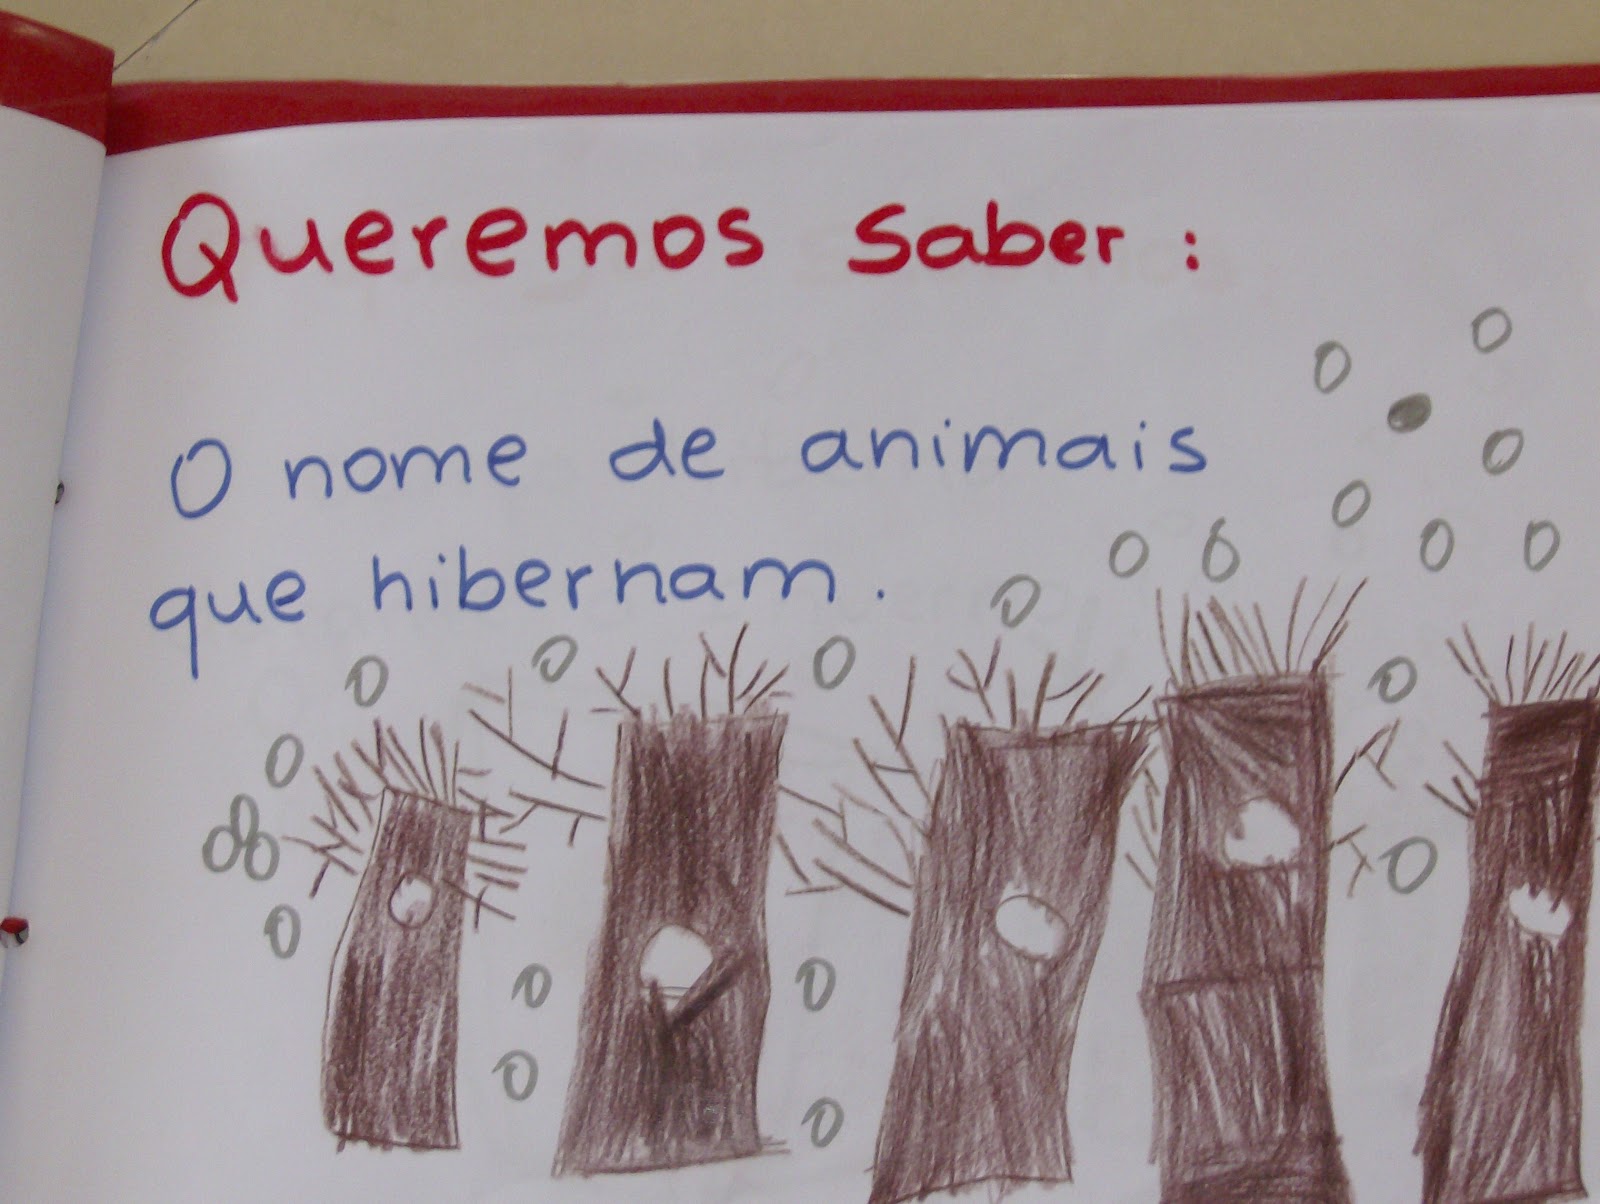 Queremos saber:
O nome de animais
que hibernam.